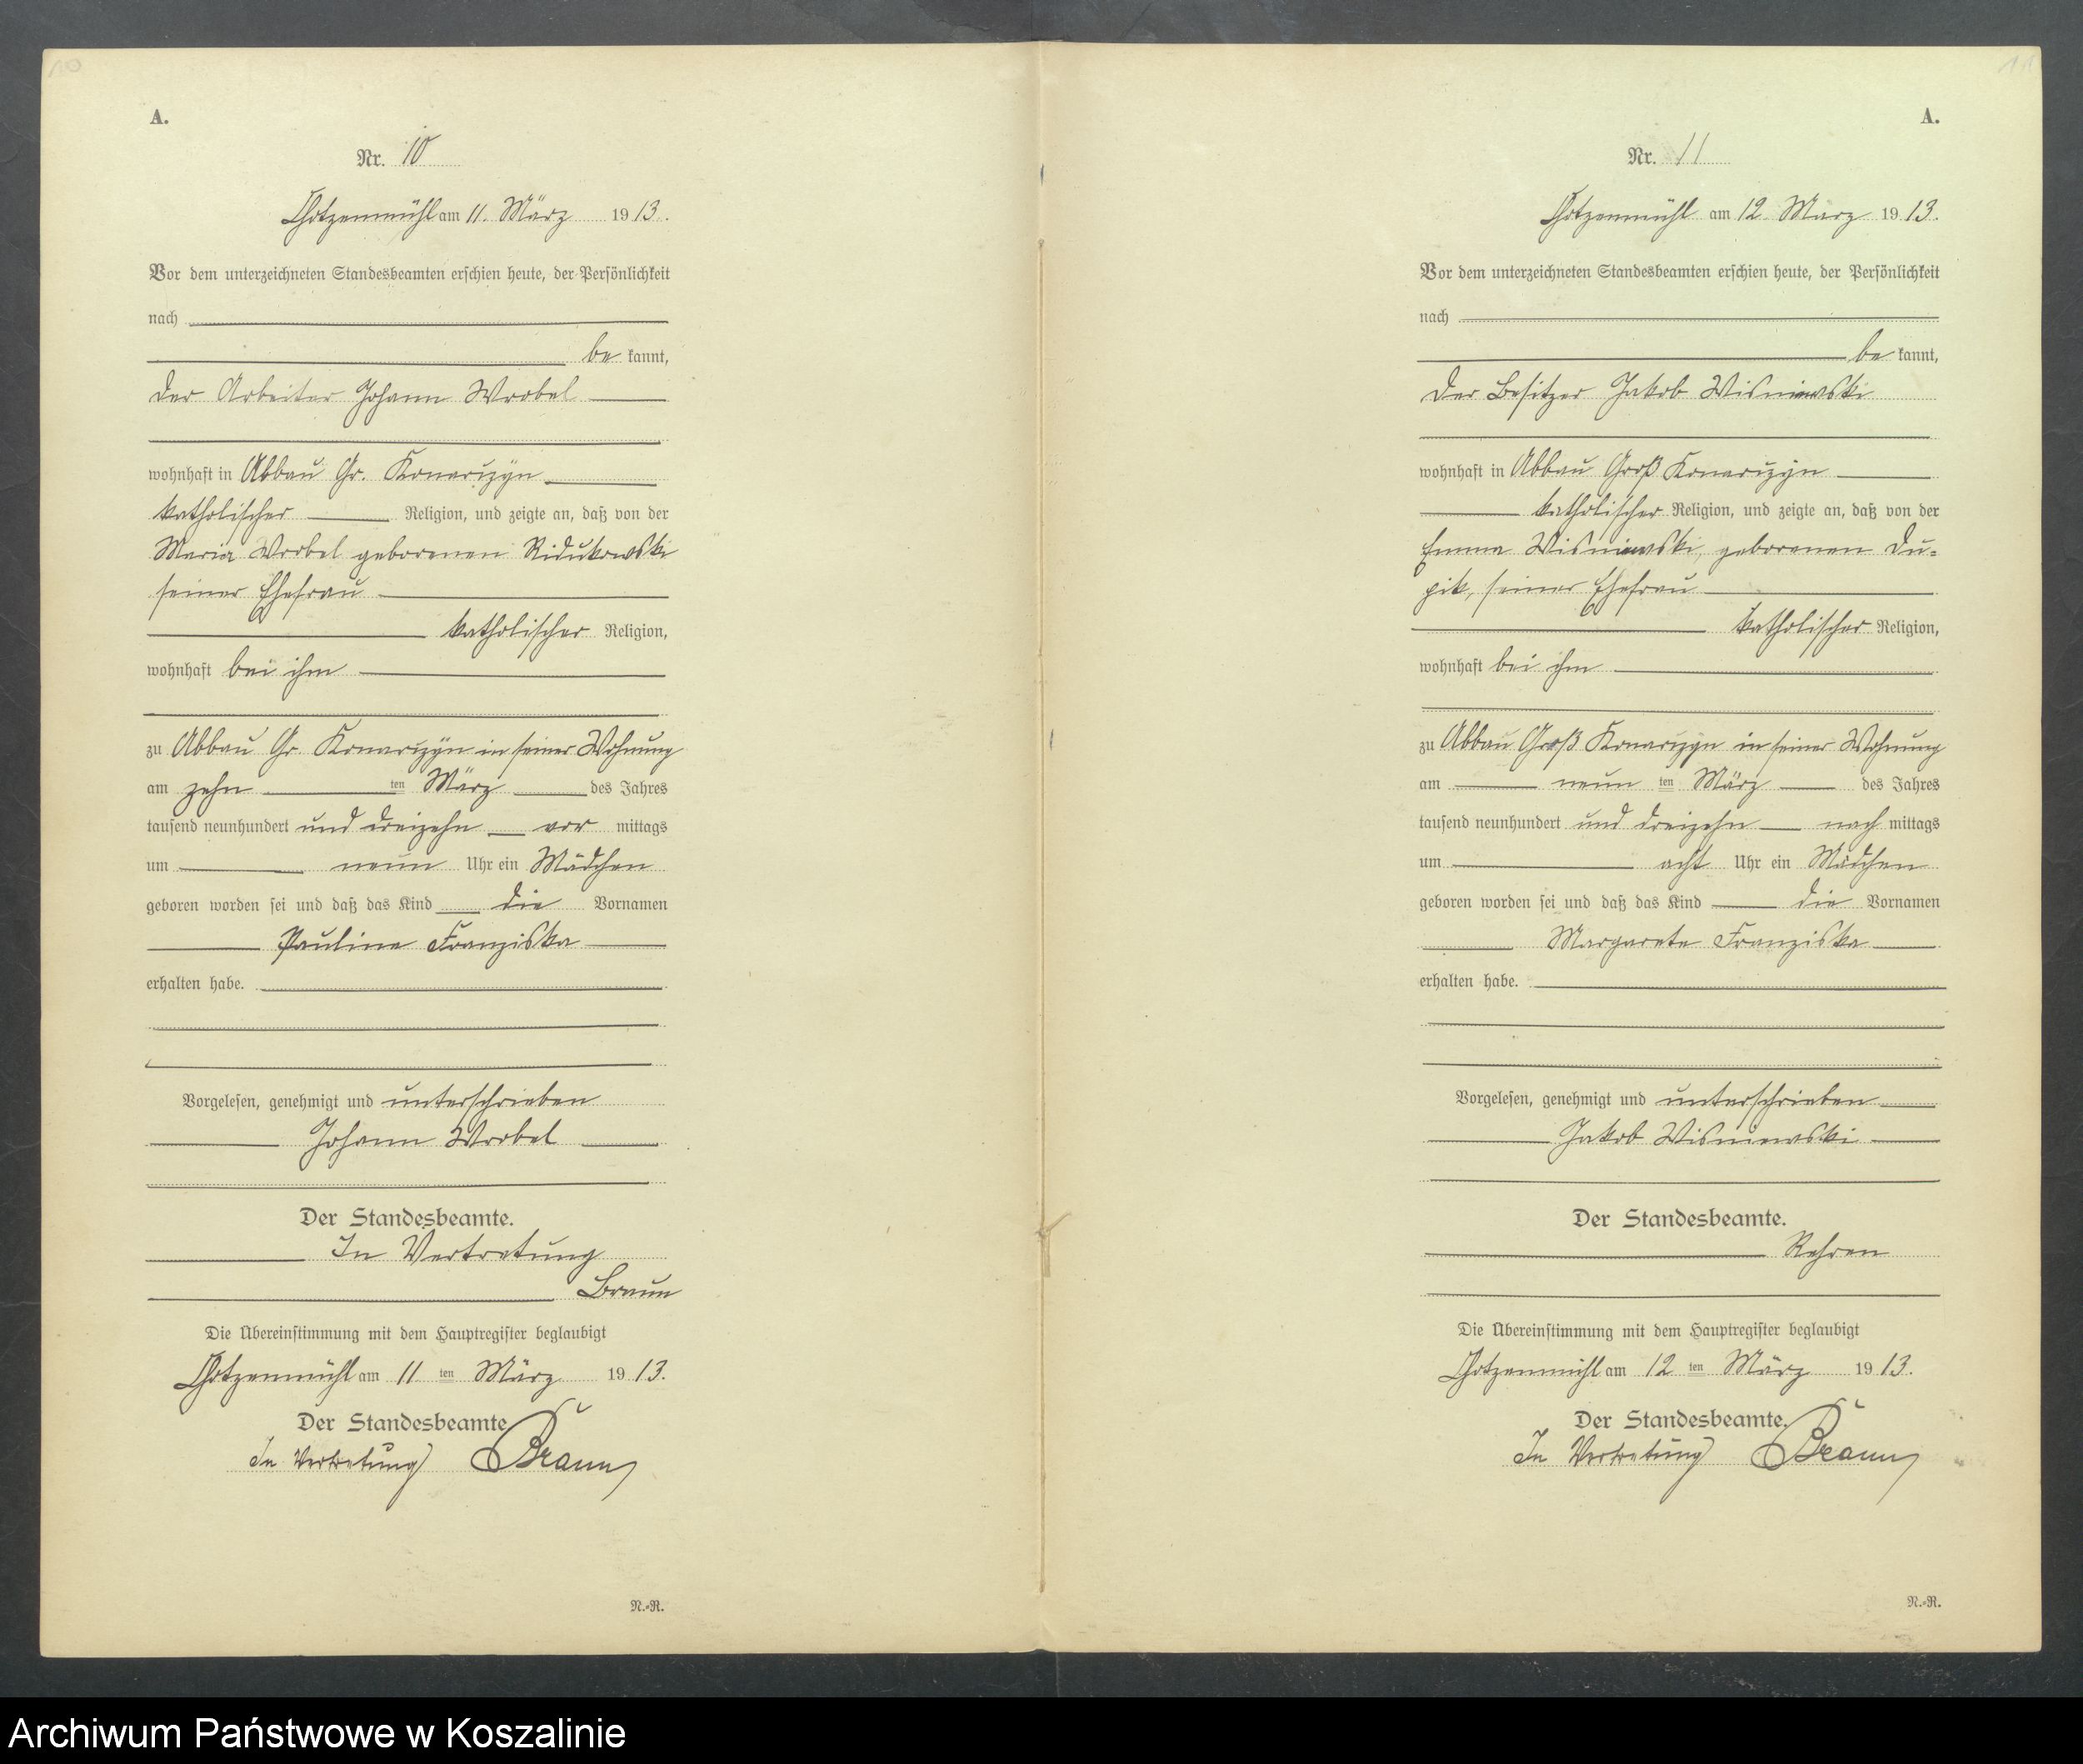 10
A.
Nr. 10
Chotzenmühl am 11. März 1913.
Vor dem unterzeichneten Standesbeamten erschien heute, der Persönlichkeit
nach
be kannt,
der Arbeiter Johann Wrobel
wohnhaft in Abbau Gr. Konarczyn
katholischer Religion, und zeigte an, daß von der
Maria Wrobel geborenen Ridukowski
seiner Ehefrau
katholischer Religion,
wohnhaft bei ihm
zu Abbau Gr. Konarczyn in seiner Wohnung
am zehn ten März des Jahres
tausend neunhundert und dreizehn vor mittags
um neun Uhr ein Mädchen
geboren worden sei und daß das Kind die Vornamen
Pauline Franziska
erhalten habe.
Vorgelesen, genehmigt und unterschrieben
Johann Wrobel
Der Standesbeamte.
In Vertretung
Braun
Die Übereinstimmung mit dem Hauptregister beglaubigt
Chotzenmühl am 11 ten März 1913.
Der Standesbeamte
In Vertretung Braun
N.-R.
11
A.
Nr. 11
Chotzenmühl am 12. März 1913.
Vor dem unterzeichneten Standesbeamten erschien heute, der Persönlichkeit
nach
be kannt,
der Besitzer Jakob Wisniewski
wohnhaft in Abbau Groß Konarczyn
katholischer Religion, und zeigte an, daß von der
Emma Wisniewski, geborenen Du-
pik, seiner Ehefrau
katholischer Religion,
wohnhaft bei ihm
zu Abbau Groß Konarczyn in seiner Wohnung
am neun ten März des Jahres
tausend neunhundert und dreizehn nach mittags
um acht Uhr ein Mädchen
geboren worden sei und daß das Kind die Vornamen
Margarete Franziska
erhalten habe.
Vorgelesen, genehmigt und unterschrieben
Jakob Wisniewski
Der Standesbeamte.
Rehren
Die Übereinstimmung mit dem Hauptregister beglaubigt
Chotzenmühl am 12 ten März 1913.
Der Standesbeamte.
In Vertretung Braun
N.-R.
Archiwum Państwowe w Koszalinie